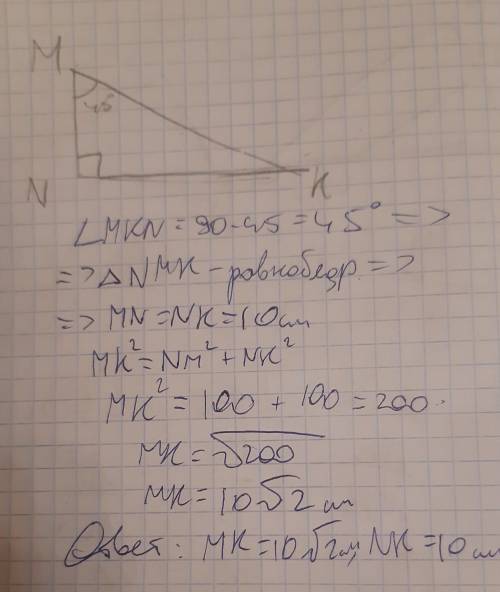 M
45
N K
∠MKN = 90-45 = 45° =>
=> △NMK - равнобедр. =>
=> MN = NK = 10 см
MK² = NM² + NK²
MK² = 100 + 100 = 200.
MK = √200
MK = 10√2 см
Ответ: MK = 10√2 см, NK = 10 см